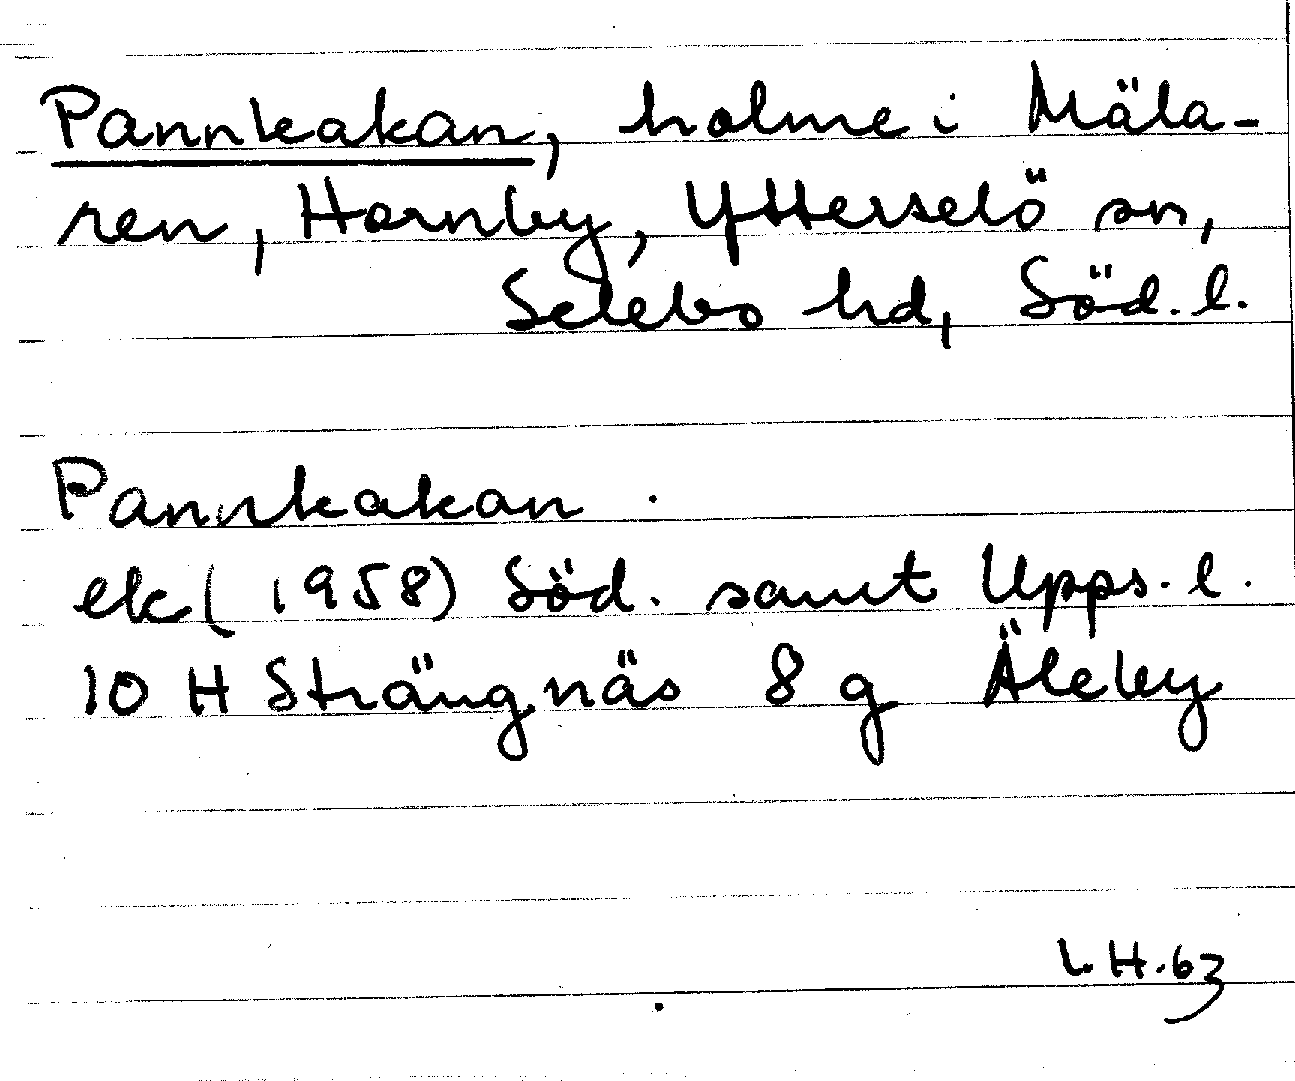 Pannkakan, holme i Mäla-
ren, Hornby, Ytterselö sn,
Selebo hd, Söd. l.
Pannkakan.
ek (1958) Söd. samt Upps. l.
10 H Strängnäs 8 g Äleby
L.H.63